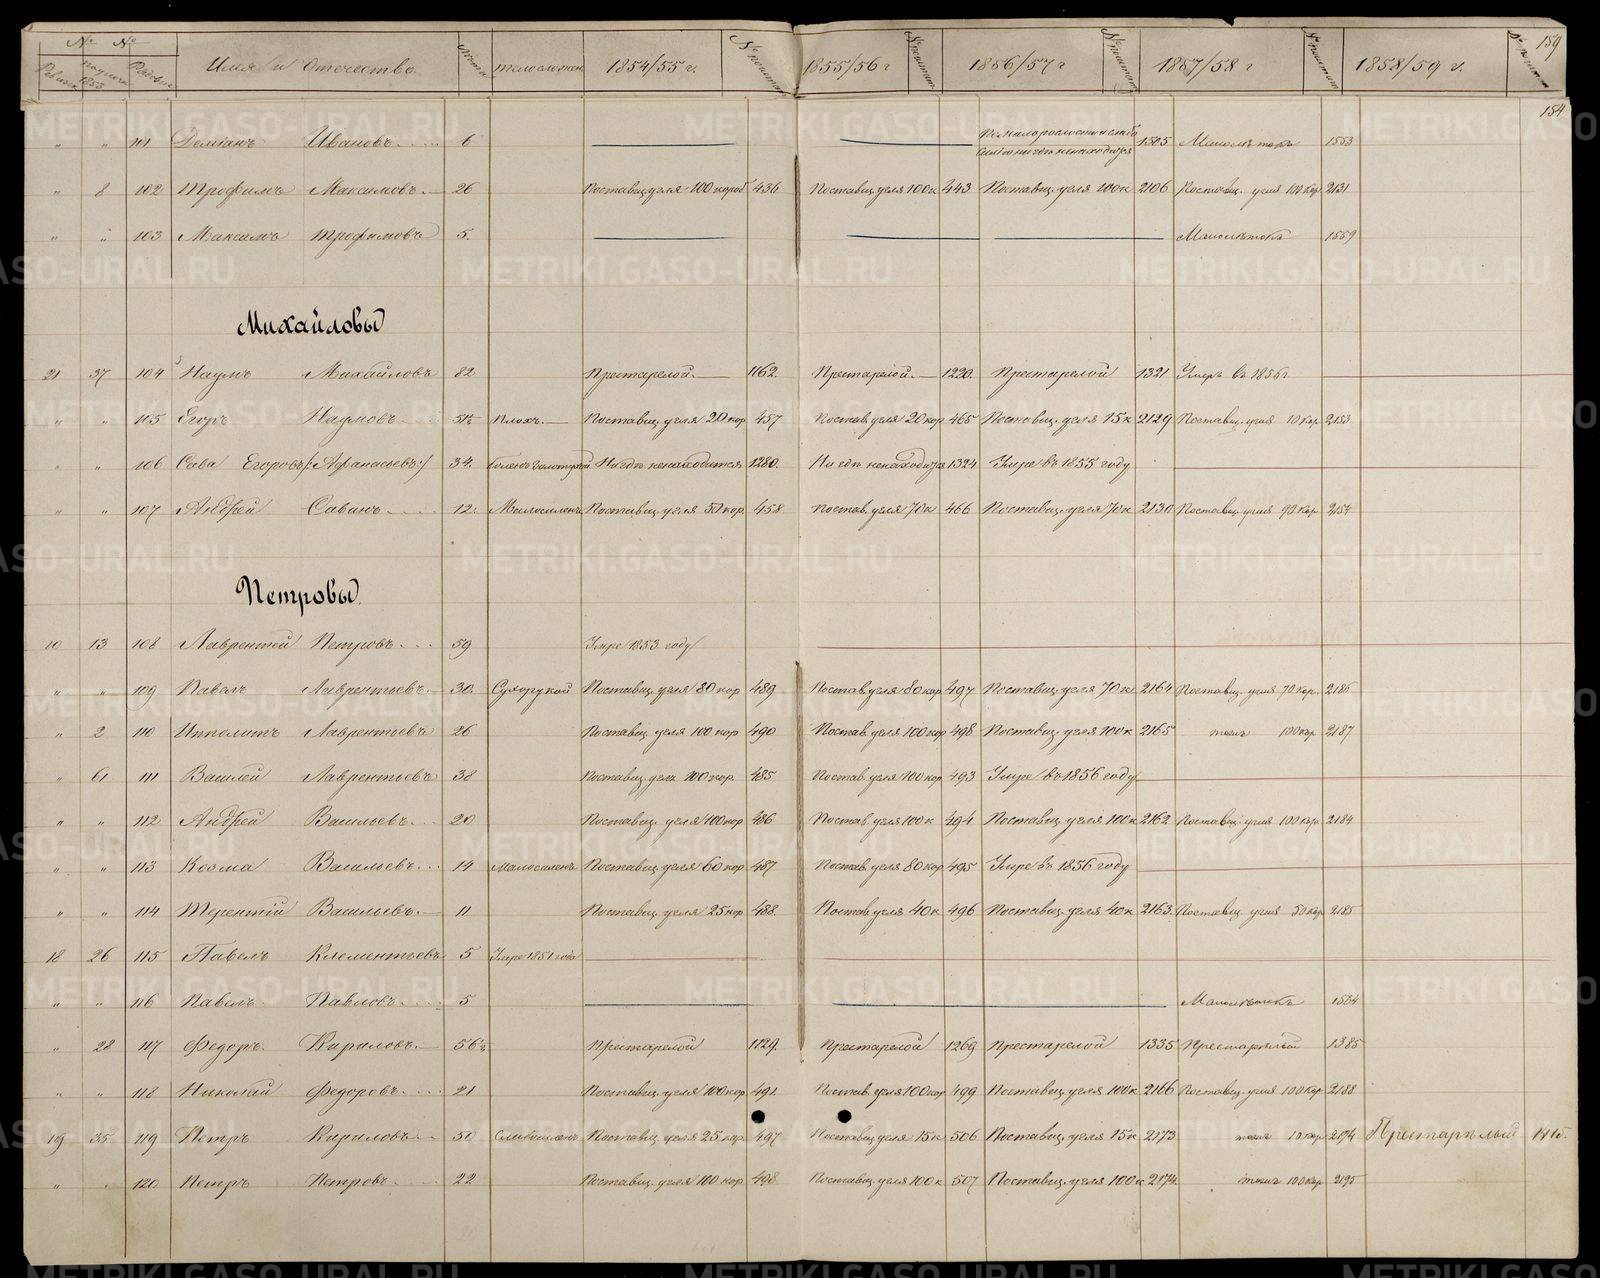 № №
Имя и Отечество
Лета
телосложен.
1854/55 г.
№ по контр.
1855/56 г
1856/57 г
1857/58 г
1858/59 г.
159
154
" " 101 Деміанъ Ивановъ 6 1505 Малолѣтокъ 1553
" 8 102 Трофимъ Максимовъ 26 Поставщ. угля 100 короб 436 Поставщ. угля 100 к 443 Поставщ. угля 100 к 2106 Поставщ. угля 100 кор 2131
" " 103 Максимъ Трофимовъ 5. Малолѣтокъ 1559
Михайловы
21 37 104 Наумъ Михайловъ 82 Престарелой 1162. Престарелой. 1220. Престарелой 1321 Умеръ въ 1856 г.
" " 105 Егоръ Наумовъ 51½ Плохъ. Поставщ. угля 20 кор 457 Постав. угля 20 кор 465 Поставщ. угля 15 к 2129 Поставщ. угля 10 кор. 2153
" " 106 Сава Егоровъ /:Афанасьевъ:/ 34. Нигдѣ ненаходится 1280. Нигдѣ ненаходится 1324 Умре въ 1855 году
" " 107 Андрей Савинъ 12. Малосиленъ Поставщ. угля 50 кор 458 Постав. угля 70 к 466 Поставщ. угля 70 к 2130 Поставщ. угля 90 кор 2154
Петровы
10 13 108 Лаврентей Петровъ 59 Умре 1853 году
" " 109 Павелъ Лаврентьевъ 30. Сухорукой Поставщ. угля 80 кор 489 Постав. угля 80 кор 497 Поставщ. угля 70 к 2164 Поставщ. угля 70 кор. 2186
" 2 110 Ипполитъ Лаврентьевъ 26 Поставщ. угля 100 кор 490 Постав. угля 100 кор 498 Поставщ. угля 100 к 2165 тожъ 100 кор 2187
" 61 111 Василей Лаврентьевъ 38 Поставщ. угля 100 кор. 485 Постав. угля 100 кор 493 Умре въ 1856 году
" " 112 Андрей Васильевъ 20 Поставщ. угля 100 кор 486 Постав. угля 100 к 494 Поставщ. угля 100 к 2162 Поставщ. угля 100 кор. 2184
" " 113 Козма Васильевъ 14 Малосиленъ Поставщ. угля 60 кор 487 Постав. угля 80 кор 495 Умре въ 1856 году
" " 114 Терентій Васильевъ 11 Поставщ. угля 25 кор 488. Постав. угля 40 к 496 Поставщ. угля 40 к 2163. Поставщ. угля 50 кор 2185
18 26 115 Павелъ Клементьевъ 5 Умре 1851 года
" " 116 Павелъ Павловъ 5 Малолѣтокъ 1584
" 28 117 Федоръ Кириловъ 56½ Престарелой 1129. Престарелой 1269 Престарелой 1335 Престарѣлый 1385
" " 118 Николай Федоровъ 21 Поставщ. угля 100 кор 491. Постав. угля 100 кор 499 Поставщ. угля 100 к 2166 Поставщ. угля 100 кор 2188
19 35 119 Петръ Кириловъ 50 Слабосиленъ Поставщ. угля 25 кор 497 Поставщ. угля 15 к 506 Поставщ. угля 15 к 2173 тожъ 10 кор 2194 Престарѣлый 1415.
" " 120 Петръ Петровъ 22 Поставщ. угля 100 кор 498 Поставщ. угля 100 к 507 Поставщ. угля 100 к 2174 тожъ 100 кор 2195
METRIKI.GASO-URAL.RU